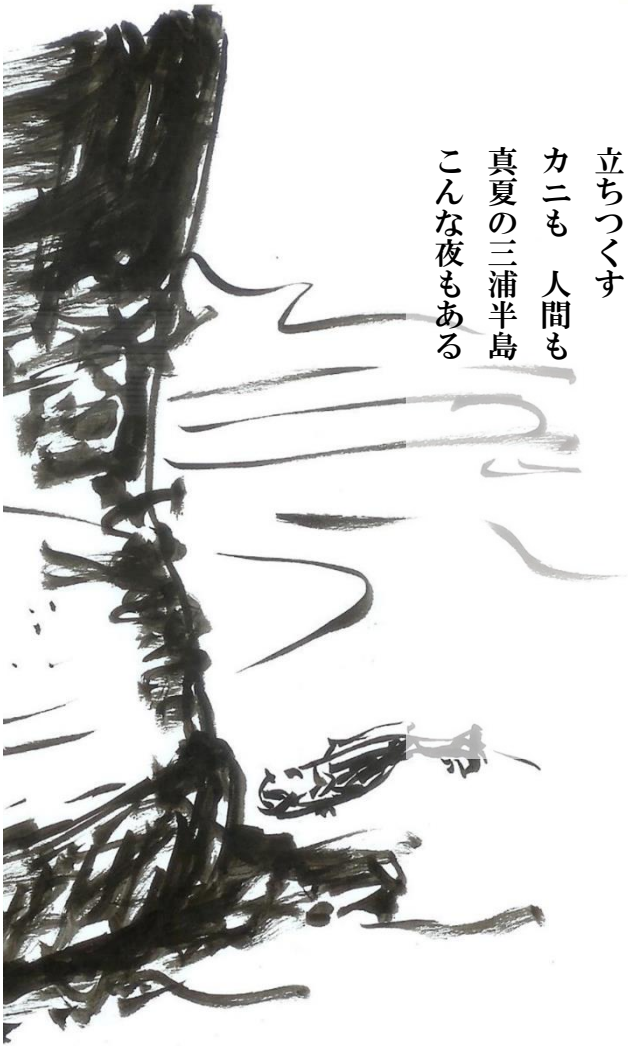 立ちつくす
カニも　人間も
真夏の三浦半島
こんな夜もある